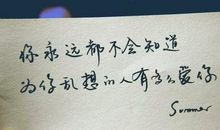 你永远都不会知道
为你乱想的人有多么爱你
Summer